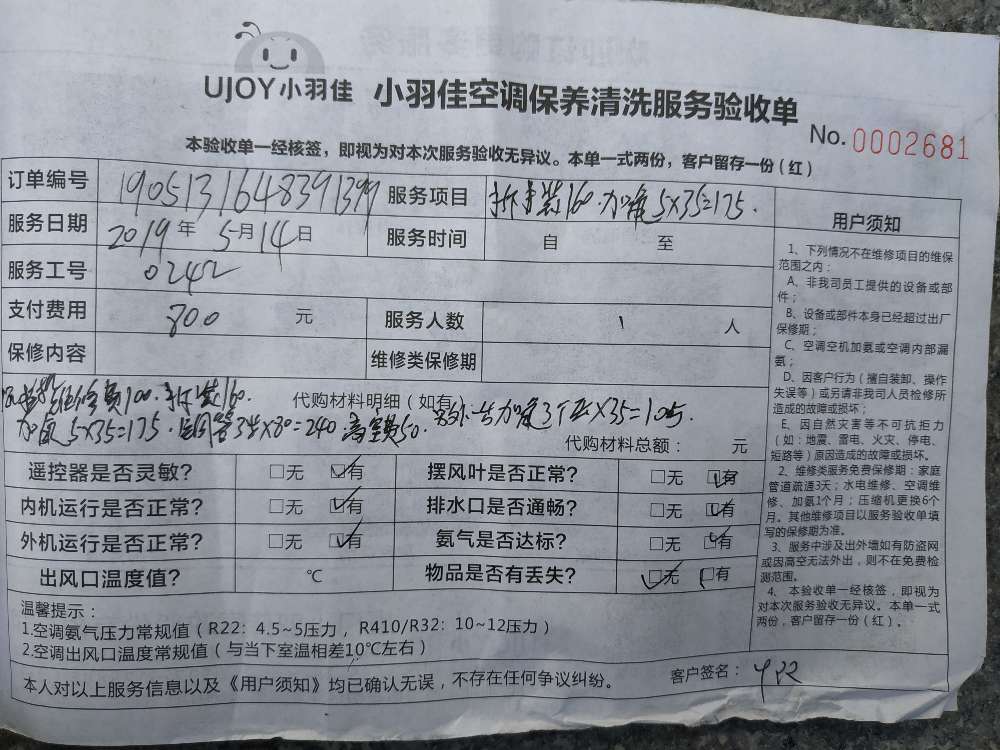 UJOY小羽佳 小羽佳空调保养清洗服务验收单
No. 0002681
本验收单一经核签，即视为对本次服务验收无异议。本单一式两份，客户留存一份（红）
订单编号 1905131648391399 服务项目 拆装160.加氟5X35=175.
服务日期 2019年5月14日 服务时间 自 至
服务工号 0242
支付费用 800 元 服务人数 1 人
保修内容 维修类保修期
维修费100.拆装160.
代购材料明细（如有
加氟5X35=175. 铜管3米X80=240.高空费50. 另外一台加氟3个压X35=105
代购材料总额： 元
遥控器是否灵敏？ □无 □有 摆风叶是否正常？ □无 □有
内机运行是否正常？ □无 □有 排水口是否通畅？ □无 □有
外机运行是否正常？ □无 □有 氨气是否达标？ □无 □有
出风口温度值？ ℃ 物品是否有丢失？ □无 □有
温馨提示：
1.空调氨气压力常规值（R22：4.5~5压力，R410/R32：10~12压力）
2.空调出风口温度常规值（与当下室温相差10℃左右）
本人对以上服务信息以及《用户须知》均已确认无误，不存在任何争议纠纷。
客户签名：
用户须知
1、下列情况不在维修项目的维保
范围之内：
A、非我司员工提供的设备或部
件；
B、设备或部件本身已经超过出厂
保修期；
C、空调空机加氨或空调内部漏
氨；
D、因客户行为（擅自装卸、操作
失误等）或另请非我司人员检修所
造成的故障或损坏；
E、因自然灾害等不可抗拒力
（如：地震、雷电、火灾、停电、
短路等）原因造成的故障或损坏。
2、维修类服务免费保修期：家庭
管道疏通3天；水电维修、空调维
修、加氨1个月；压缩机更换6个
月。其他维修项目以服务验收单填
写的保修期为准。
3、服务中涉及出外墙如有防盗网
或因高空无法外出，则不在免费检
测范围。
4、本验收单一经核签，即视为
对本次服务验收无异议。本单一式
两份，客户留存一份（红）。